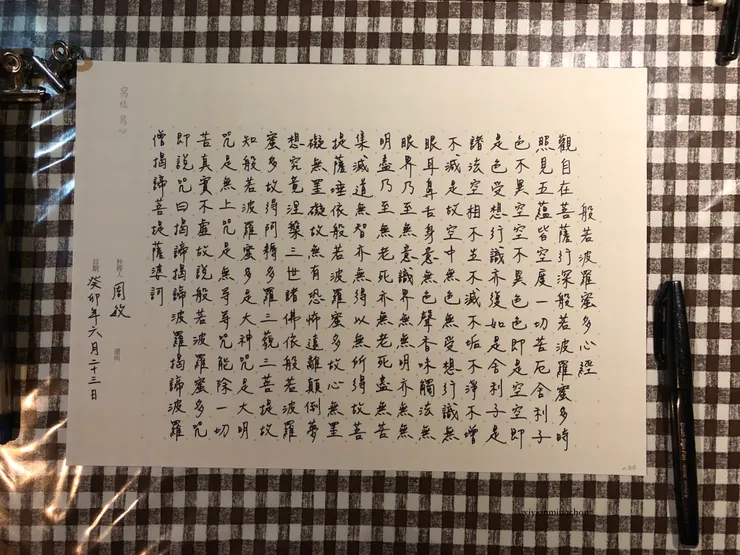 般若波羅蜜多心經
觀自在菩薩行深般若波羅蜜多時
照見五蘊皆空度一切苦厄舍利子
色不異空空不異色色即是空空即
是色受想行識亦復如是舍利子是
諸法空相不生不滅不垢不淨不增
不減是故空中無色無受想行識無
眼耳鼻舌身意無色聲香味觸法無
眼界乃至無意識界無無明亦無無
明盡乃至無老死亦無老死盡無苦
集滅道無智亦無得以無所得故菩
提薩埵依般若波羅蜜多故心無罣
礙無罣礙故無有恐怖遠離顛倒夢
想究竟涅槃三世諸佛依般若波羅
蜜多故得阿耨多羅三藐三菩提故
知般若波羅蜜多是大神咒是大明
咒是無上咒是無等等咒能除一切
苦真實不虛故說般若波羅蜜多咒
即說咒曰揭諦揭諦波羅揭諦波羅
僧揭諦菩提薩婆訶
周
迴向
日期 癸卯年六月二十三日